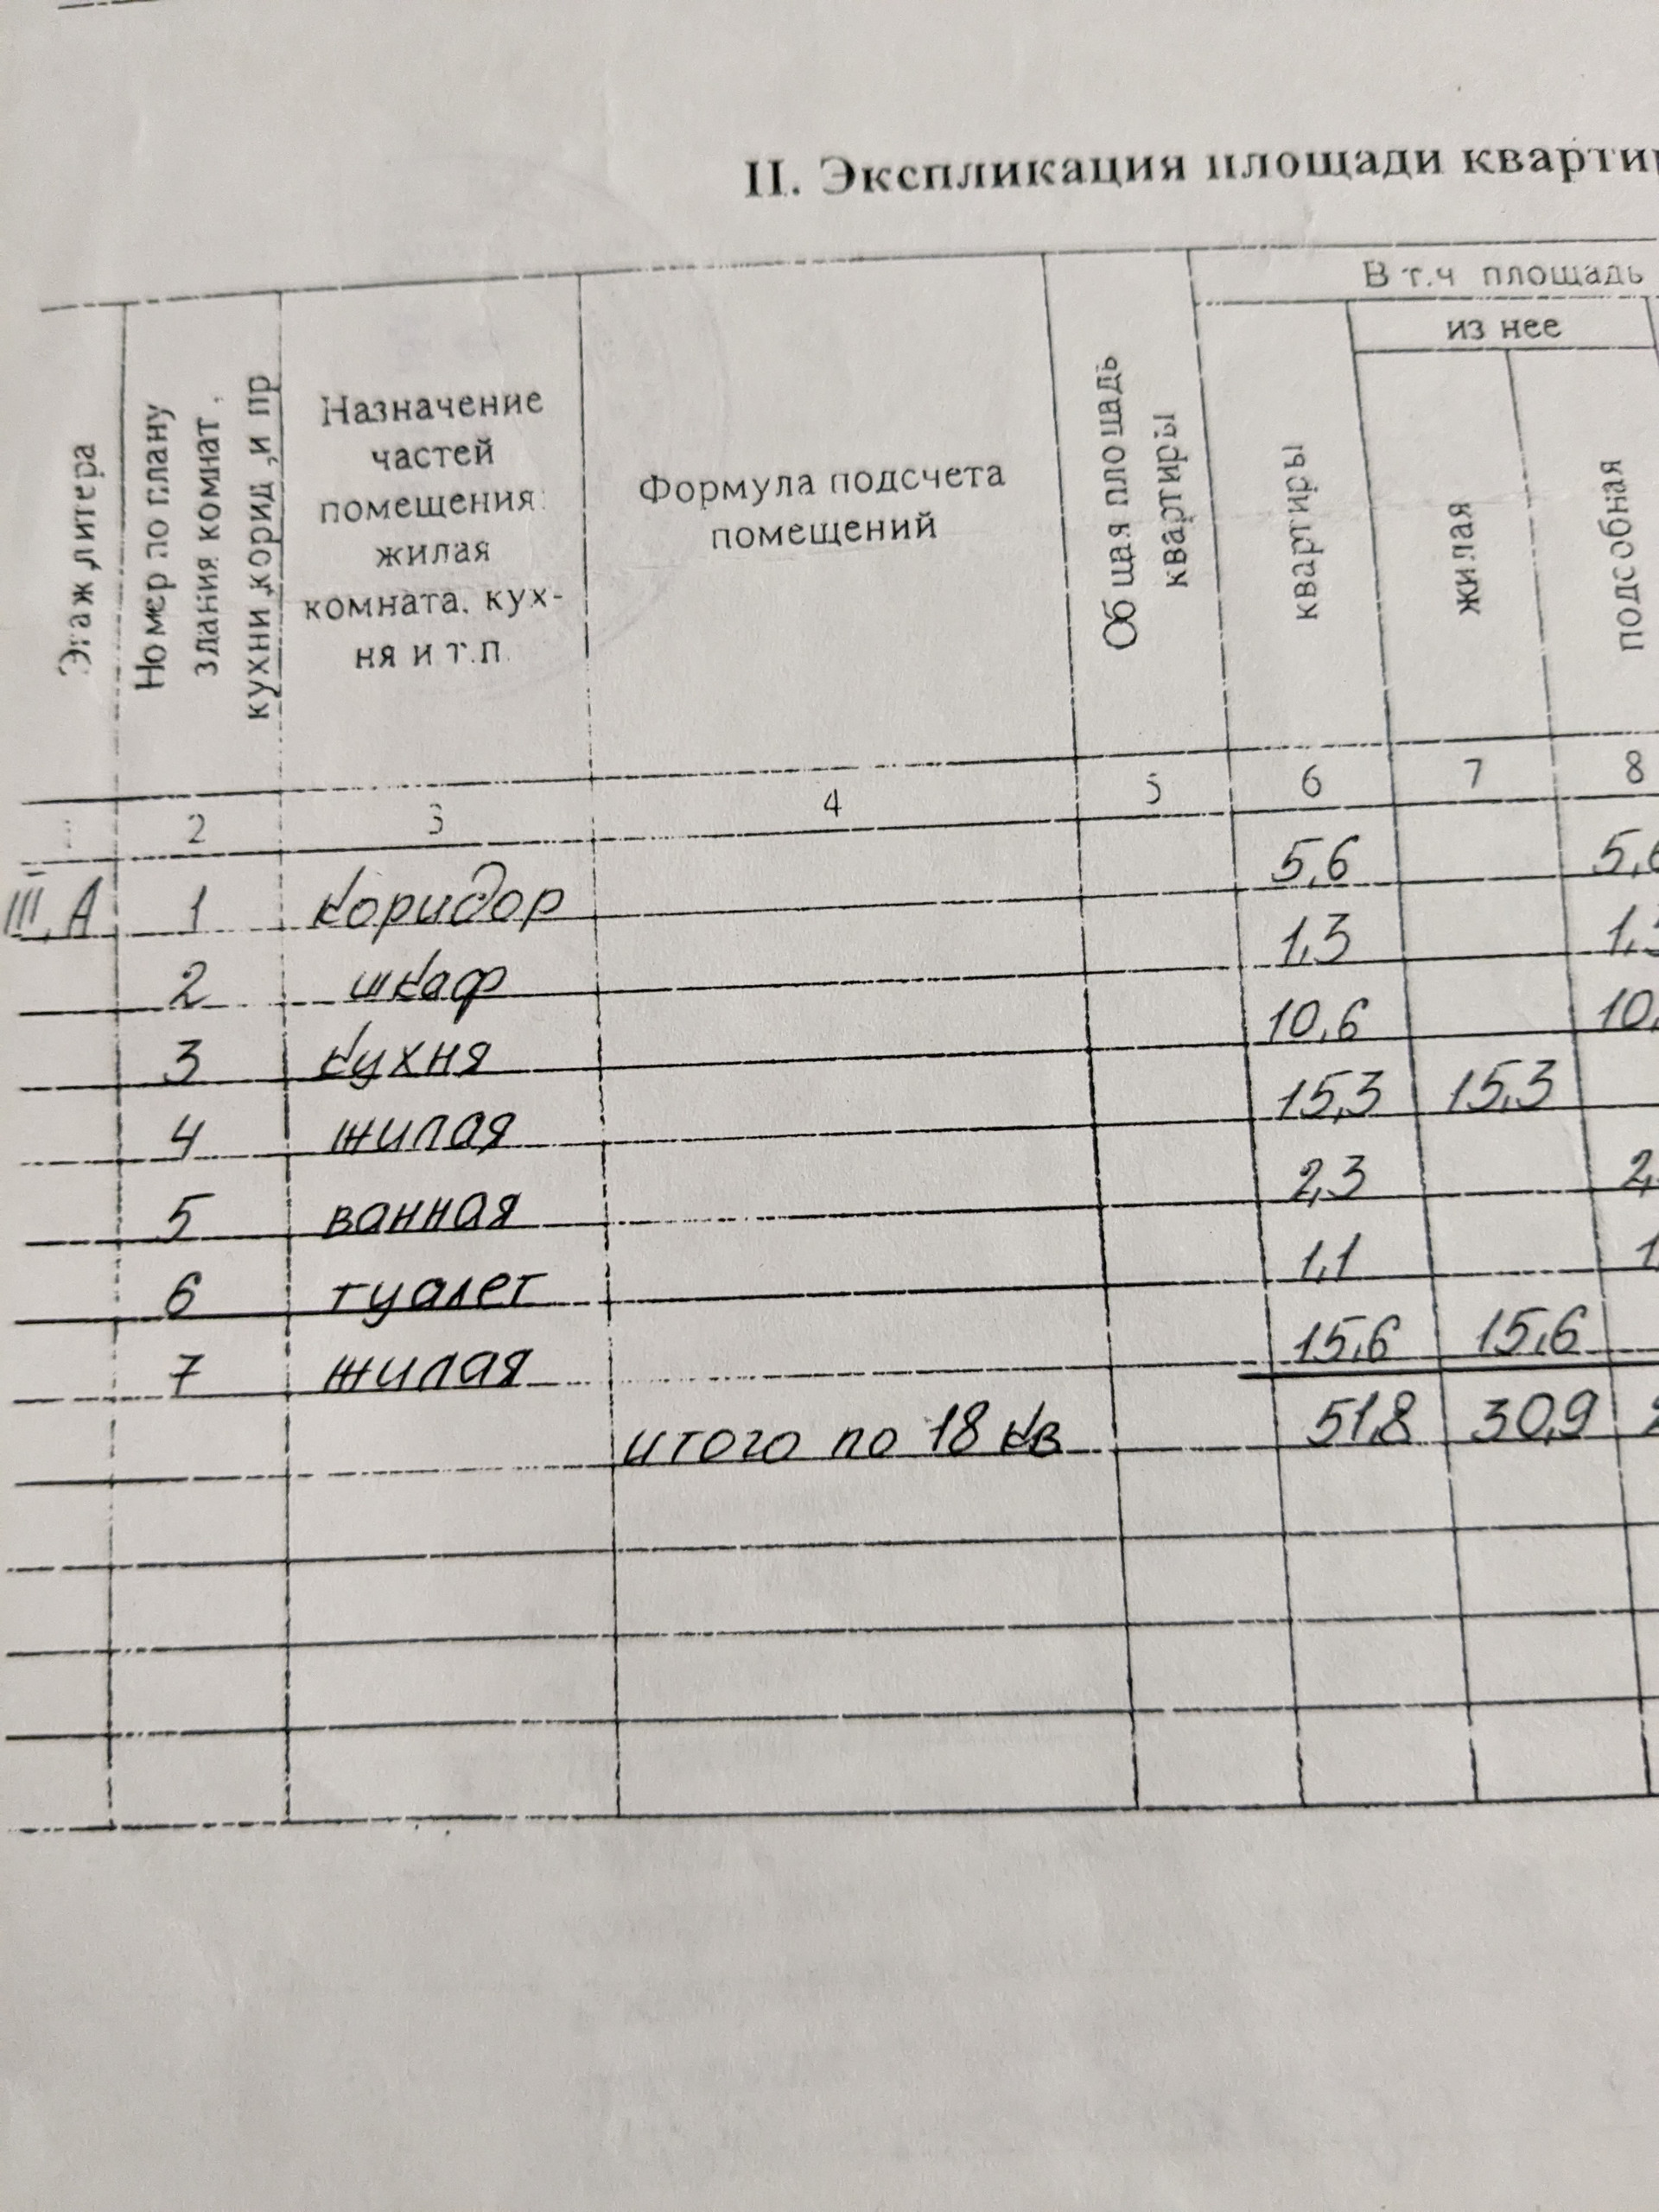 II. Экспликация площади кварти
Этаж, литера
Номер по плану здания комнат, кухни, корид, и пр
Назначение частей помещения: жилая комната, кухня и т.п.
Формула подсчета помещений
Общая площадь квартиры
В т.ч площадь
из нее
квартиры
жилая
подсобная
1 2 3 4 5 6 7 8
III, А 1 коридор 5,6 5,6
2 шкаф 1,3 1,3
3 кухня 10,6 10,
4 жилая 15,3 15,3
5 ванная 2,3 2,
6 туалет 1,1 1,
7 жилая 15,6 15,6
итого по 18 кв 51,8 30,9 2